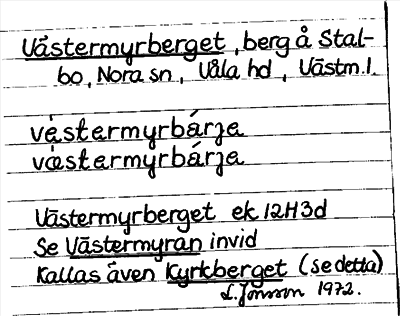 Västermyrberget, berg å Stal-
bo, Nora sn, Våla hd, Västm.l.
vástermyrbárja
væ̀stermyrbárja
Västermyrberget ek 12H3d
Se Västermyran invid
Kallas även Kyrkberget (se detta)
L. Jonsson 1972.